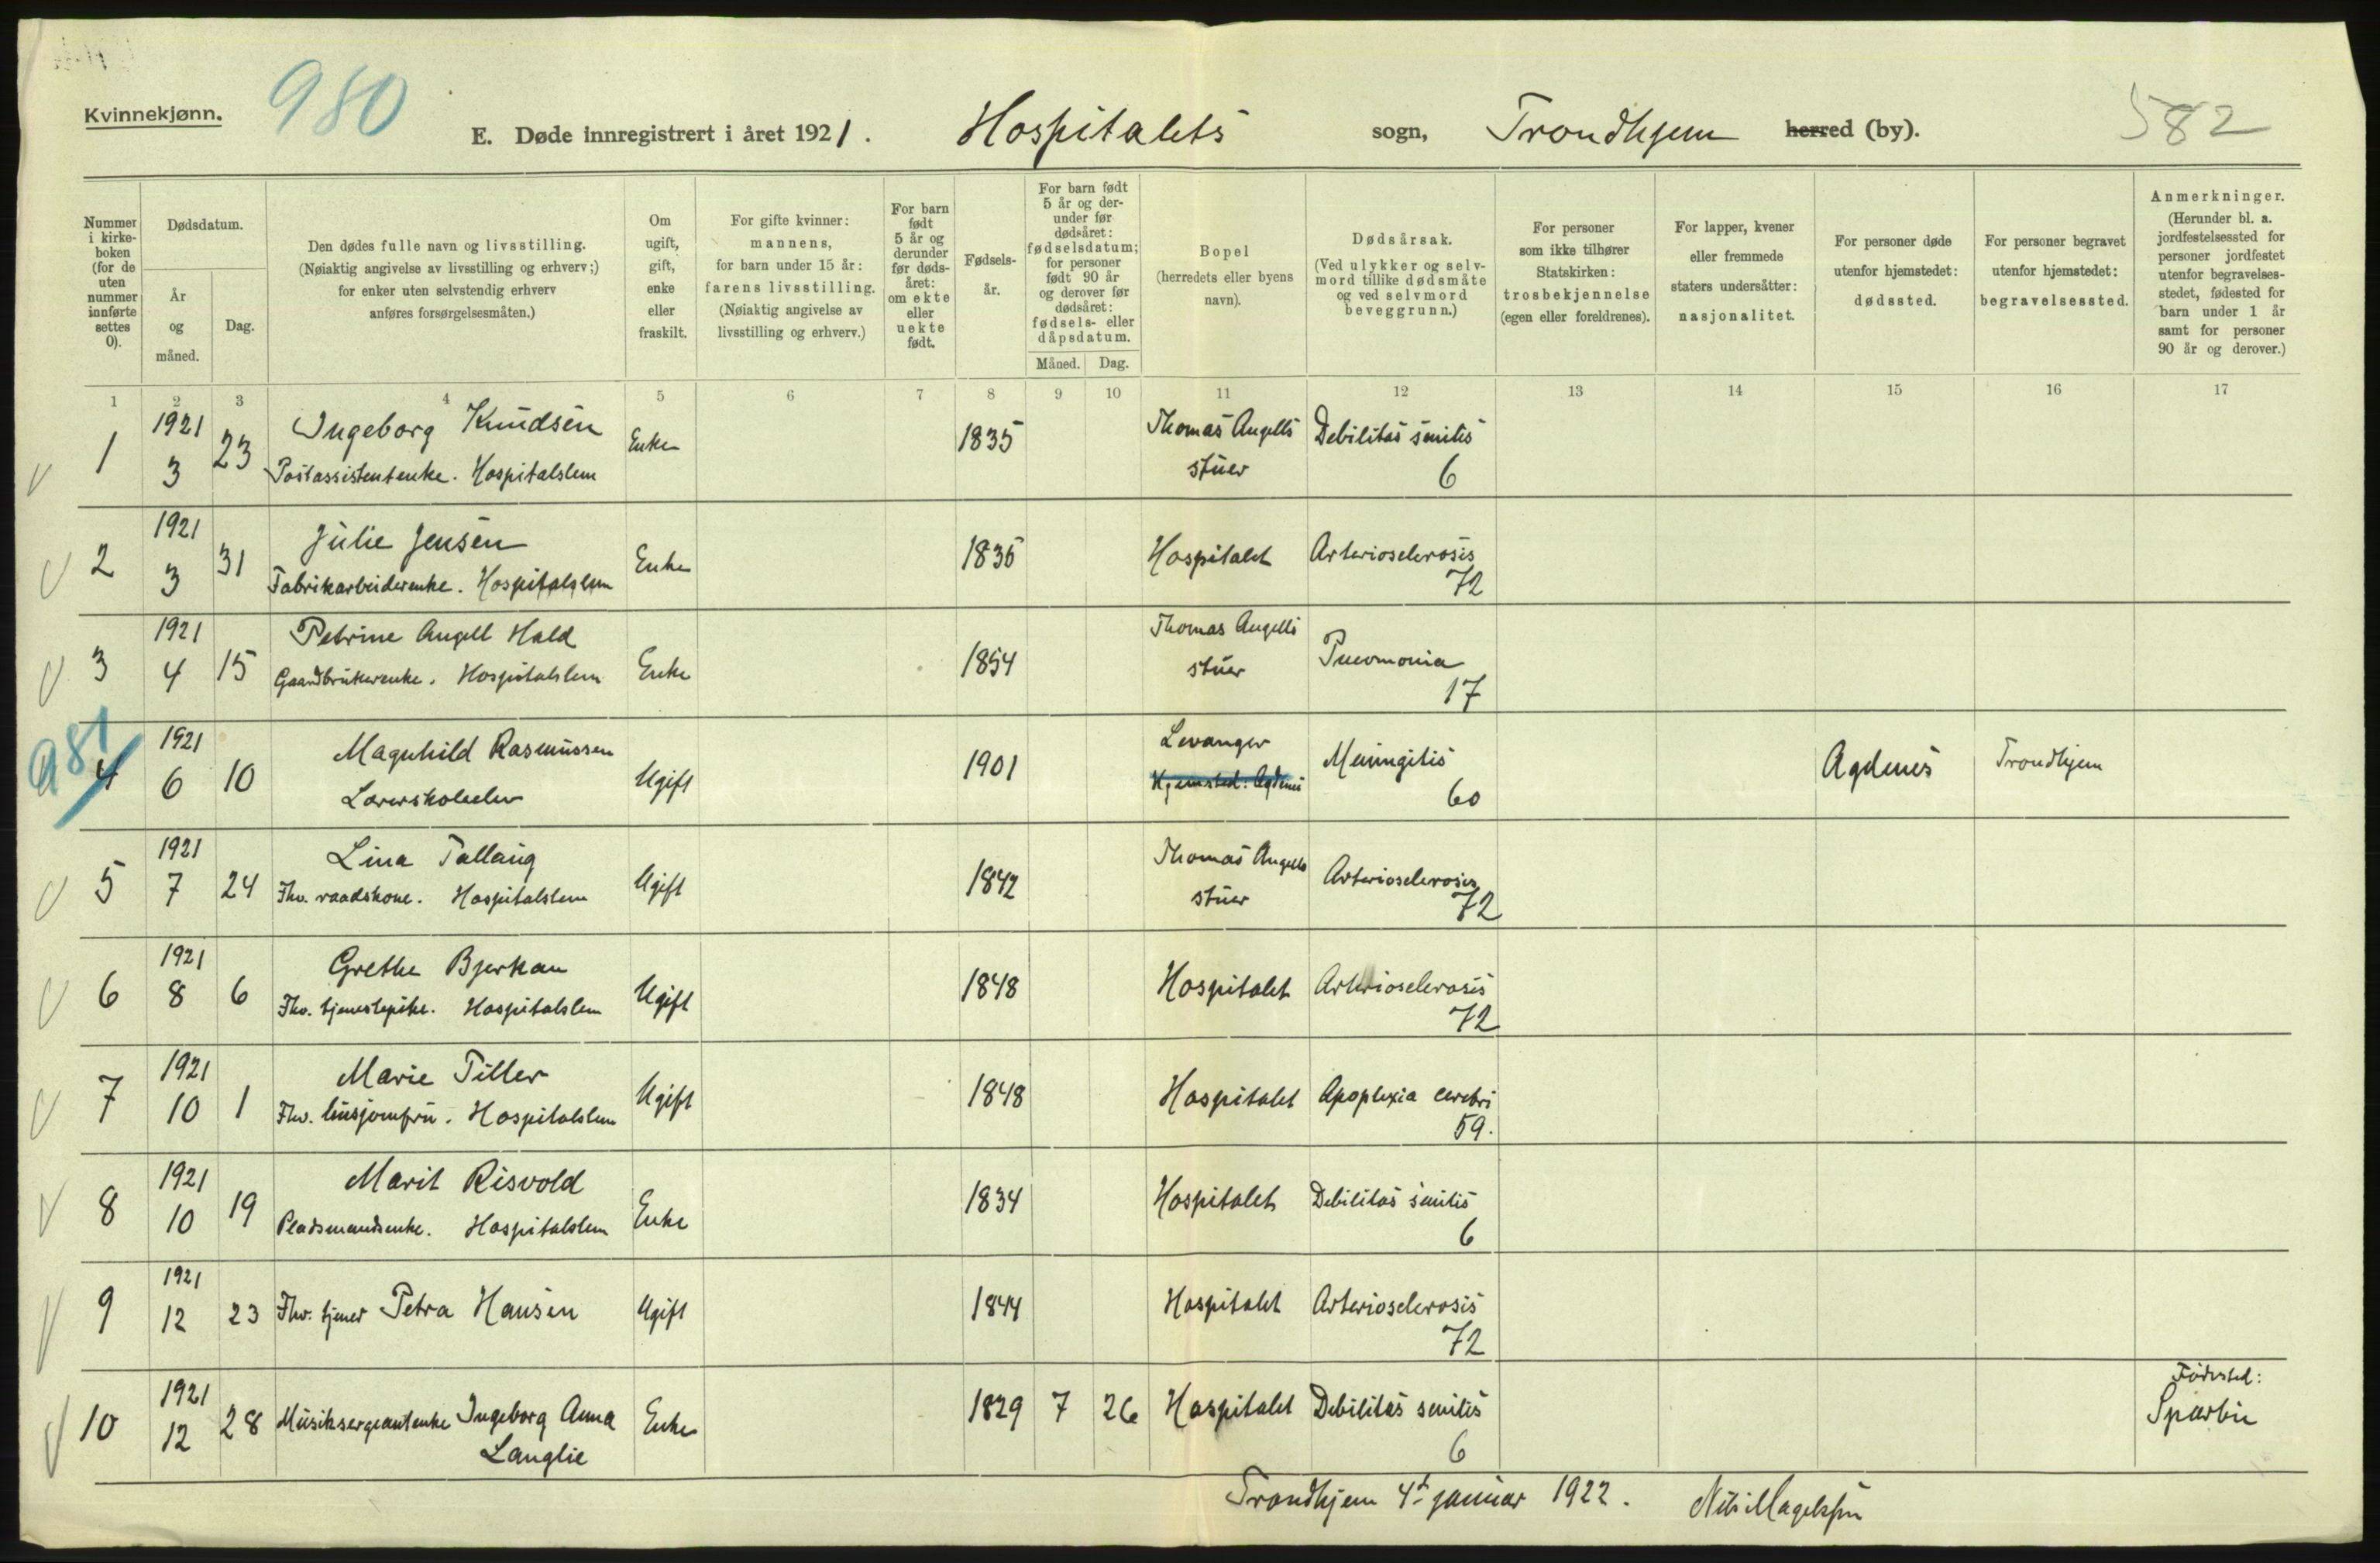 Kvinnekjønn.
980
E. Døde innregistrert i året 1921.
Hospitalets sogn, Trondhjem herred (by).
582
Nummer i kirke-boken (for de uten nummer innførte settes 0).
Dødsdatum.
År og måned.
Dag.
Den dødes fulle navn og livsstilling.
(Nøiaktig angivelse av livsstilling og erhverv;)
for enker uten selvstendig erhverv
anføres forsørgelsesmåten.)
Om ugift, gift, enke eller fraskilt.
For gifte kvinner:
mannens,
for barn under 15 år:
farens livsstilling.
(Nøiaktig angivelse av
livsstilling og erhverv.)
For barn født 5 år og derunder før døds-året: om ekte eller uekte født.
Fødsels-år.
For barn født 5 år og der-under før dødsåret: fødselsdatum; for personer født 90 år og derover før dødsåret: fødsels- eller dåpsdatum.
Måned. Dag.
Bopel
(herredets eller byens navn).
Dødsårsak.
(Ved ulykker og selv-mord tillike dødsmåte og ved selvmord beveggrunn.)
For personer som ikke tilhører Statskirken: trosbekjennelse (egen eller foreldrenes).
For lapper, kvener eller fremmede staters undersåtter: nasjonalitet.
For personer døde utenfor hjemstedet: dødssted.
For personer begravet utenfor hjemstedet: begravelsessted.
Anmerkninger.
(Herunder bl. a. jordfestelsessted for personer jordfestet utenfor begravelses-stedet, fødested for barn under 1 år samt for personer 90 år og derover.)
1 2 3 4 5 6 7 8 9 10 11 12 13 14 15 16 17
1 1921 3 23 Ingeborg Knudsen Enke 1835 Thomas Angells stuer Debilitas senilis 6
Postassistentenke. Hospitalslem
2 1921 3 31 Julie Jensen Enke 1836 Hospitalet Arteriosclerosis 72
Fabrikarbeiderenke. Hospitalslem
3 1921 4 15 Petrine Angell Hald Enke 1854 Thomas Angells stuer Pneomonia 17
Gaardbrukerenke. Hospitalslem
981
4 1921 6 10 Magnhild Rasmussen Ugift 1901 Levanger Hjemsted: Agdenes Meningitis 60 Agdenes Trondhjem
Lærerskoleelev
5 1921 7 24 Lina Tallaug Ugift 1842 Thomas Angells stuer Arteriosclerosis 72
Fhv. raadskone. Hospitalslem
6 1921 8 6 Grethe Bjerkan Ugift 1848 Hospitalet Arteriosclerosis 72
Fhv. tjenestepike. Hospitalslem
7 1921 10 1 Marie Tiller Ugift 1848 Hospitalet Apoplexia cerebri 59.
Fhv. husjomfru. Hospitalslem
8 1921 10 19 Marit Risvold Enke 1834 Hospitalet Debilitas senilis 6
Pladsmandsenke. Hospitalslem
9 1921 12 23 Fhv. tjener Petra Hansen Ugift 1844 Hospitalet Arteriosclerosis 72
10 1921 12 28 Musiksergeantenke Ingeborg Anna Langlie Enke 1829 7 26 Hospitalet Debilitas senilis 6 Fødested: Sparbu
Trondhjem 4de januar 1922.